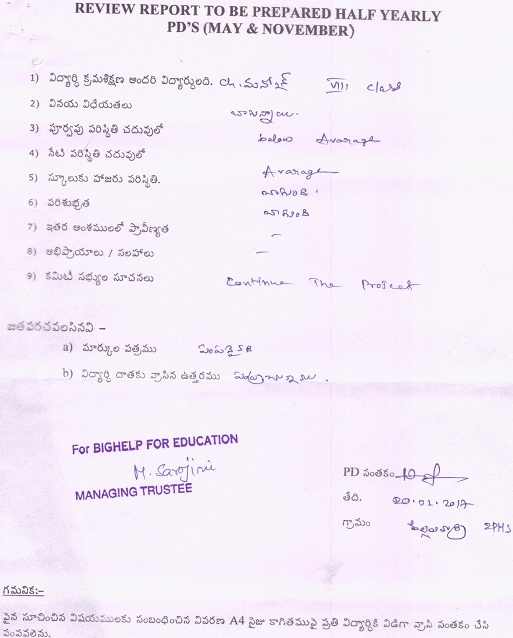 REVIEW REPORT TO BE PREPARED HALF YEARLY
PD'S (MAY & NOVEMBER)
1) విద్యార్ధి క్రమశిక్షణ అందరి విద్యార్ధులది. Ch. మనోజ్ VIII class
2) వినయ విధేయతలు బాగున్నాయి.
3) పూర్వపు పరిస్థితి చదువులో below Avarage
4) నేటి పరిస్థితి చదువులో Avarage
5) స్కూలుకు హాజరు పరిస్థితి. బాగుంది.
6) పరిశుభ్రత బాగుంది
7) ఇతర అంశములలో ప్రావీణ్యత –
8) అభిప్రాయాలు / సలహాలు –
9) కమిటీ సభ్యుల సూచనలు Continue The Proseet
జతపరచవలసినవి –
a) మార్కుల పత్రము పంపడైనది
b) విద్యార్ధి దాతకు వ్రాసిన ఉత్తరము
For BIGHELP FOR EDUCATION
M. Sarojini
MANAGING TRUSTEE
PD సంతకం
తేది. 20.02.2017
గ్రామం ZPHS
గమనిక:–
పైన సూచించిన విషయములకు సంబంధించిన వివరణ A4 సైజు కాగితముపై ప్రతి విద్యార్ధికి విడిగా వ్రాసి సంతకం చేసి
పంపవలెను.